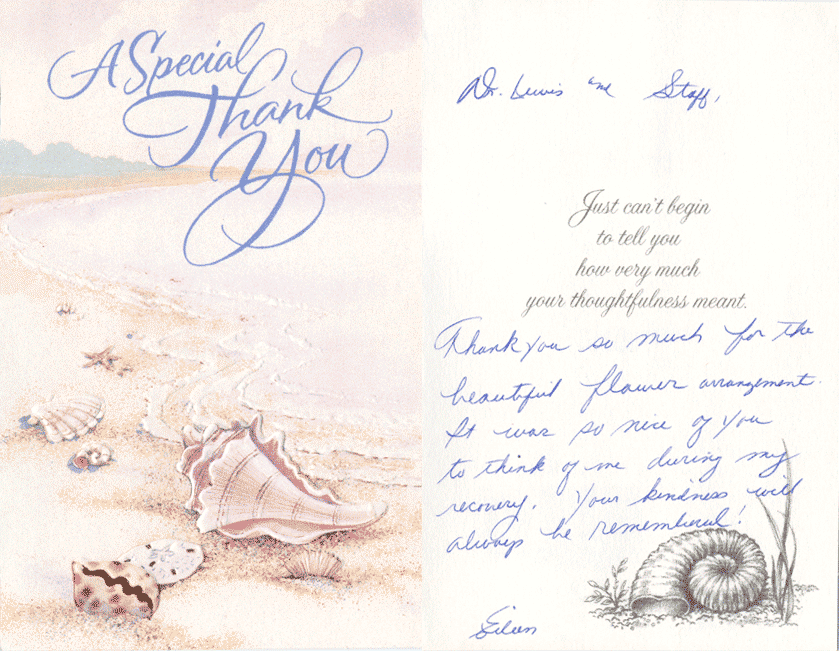 A Special
Thank
You
Dr. Lewis and Staff,
Just can't begin
to tell you
how very much
your thoughtfulness meant.
Thank you so much for the
beautiful flower arrangement.
It was so nice of you
to think of me during my
recovery. Your kindness will
always be remembered!
Eileen